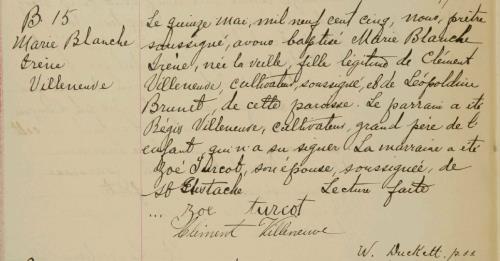 B 15
Marie Blanche
Irène
Villeneuve
Le quinze mai, mil neuf cent cinq, nous, prêtre
soussigné, avons baptisé Marie Blanche
Irène, née la veille, fille légitime de Clément
Villeneuve, cultivateur, soussigné, et de Léopoldine
Brunet, de cette paroisse. Le parrain a été
Régis Villeneuve, cultivateur, grand père de l'
enfant, qui n'a su signer. La marraine a été
Zoé Turcot, son épouse, soussignée, de
St Eustache Lecture faite
... Zoé turcot
Clément Villeneuve
W. Duckett. p